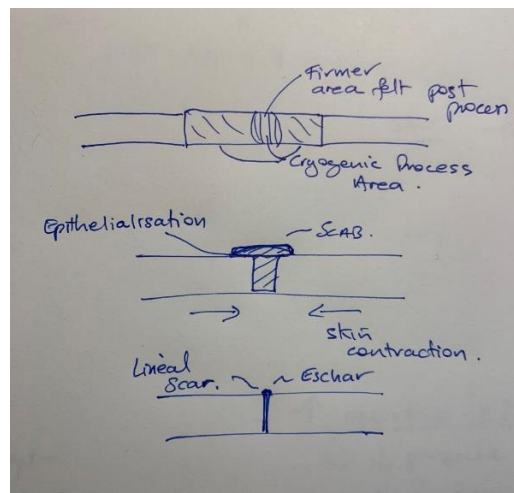 Firmer
area felt post
process
Cryogenic Process
Area.
Epithelialisation
SCAB.
skin
contraction.
Lineal
Scar.
Eschar